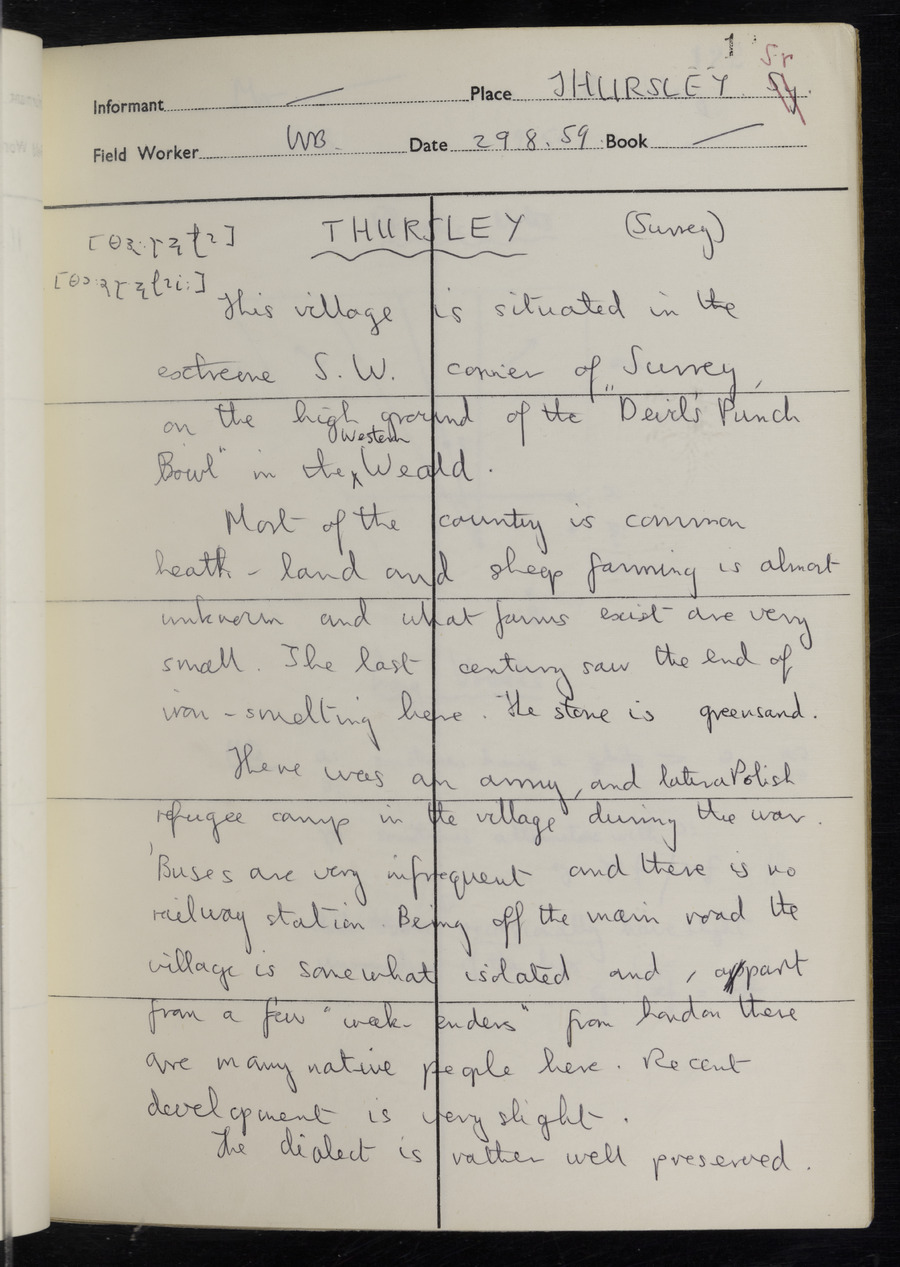 1
Sr
Informant Place THURSLEY Sy
Field Worker WB. Date 29 8. 59 Book
THURSLEY (Surrey)
This village is situated in the
extreme S.W. corner of Surrey,
on the high ground of the "Devil's Punch
Western
Bowl" in the Weald.
Most of the country is common
heath-land and sheep farming is almost
unknown and what farms exist are very
small. The last century saw the end of
iron-smelting here. The stone is greensand.
There was an army, and later a Polish
refugee camp in the village during the war.
Buses are very infrequent and there is no
railway station. Being off the main road the
village is somewhat isolated and, appart
from a few "week-enders" from London there
are many native people here. Recent
development is very slight.
The dialect is rather well preserved.